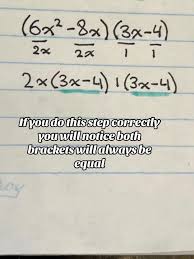 (6x² - 8x) (3x - 4)
2x 2x 1 1
2x(3x-4) 1(3x-4)
If you do this step correctly
you will notice both
brackets will always be
equal